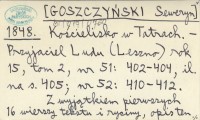 [GOSZCZYŃSKI Seweryn]
1848. Kościelisko w Tatrach. –
Przyjaciel Ludu (Leszno) rok
15, tom 2, nr 51: 402-404, il.
na s. 405; nr 52: 410-412.
Z wyjątkiem pierwszych
16 wierszy tekstu i ryciny, opis ten